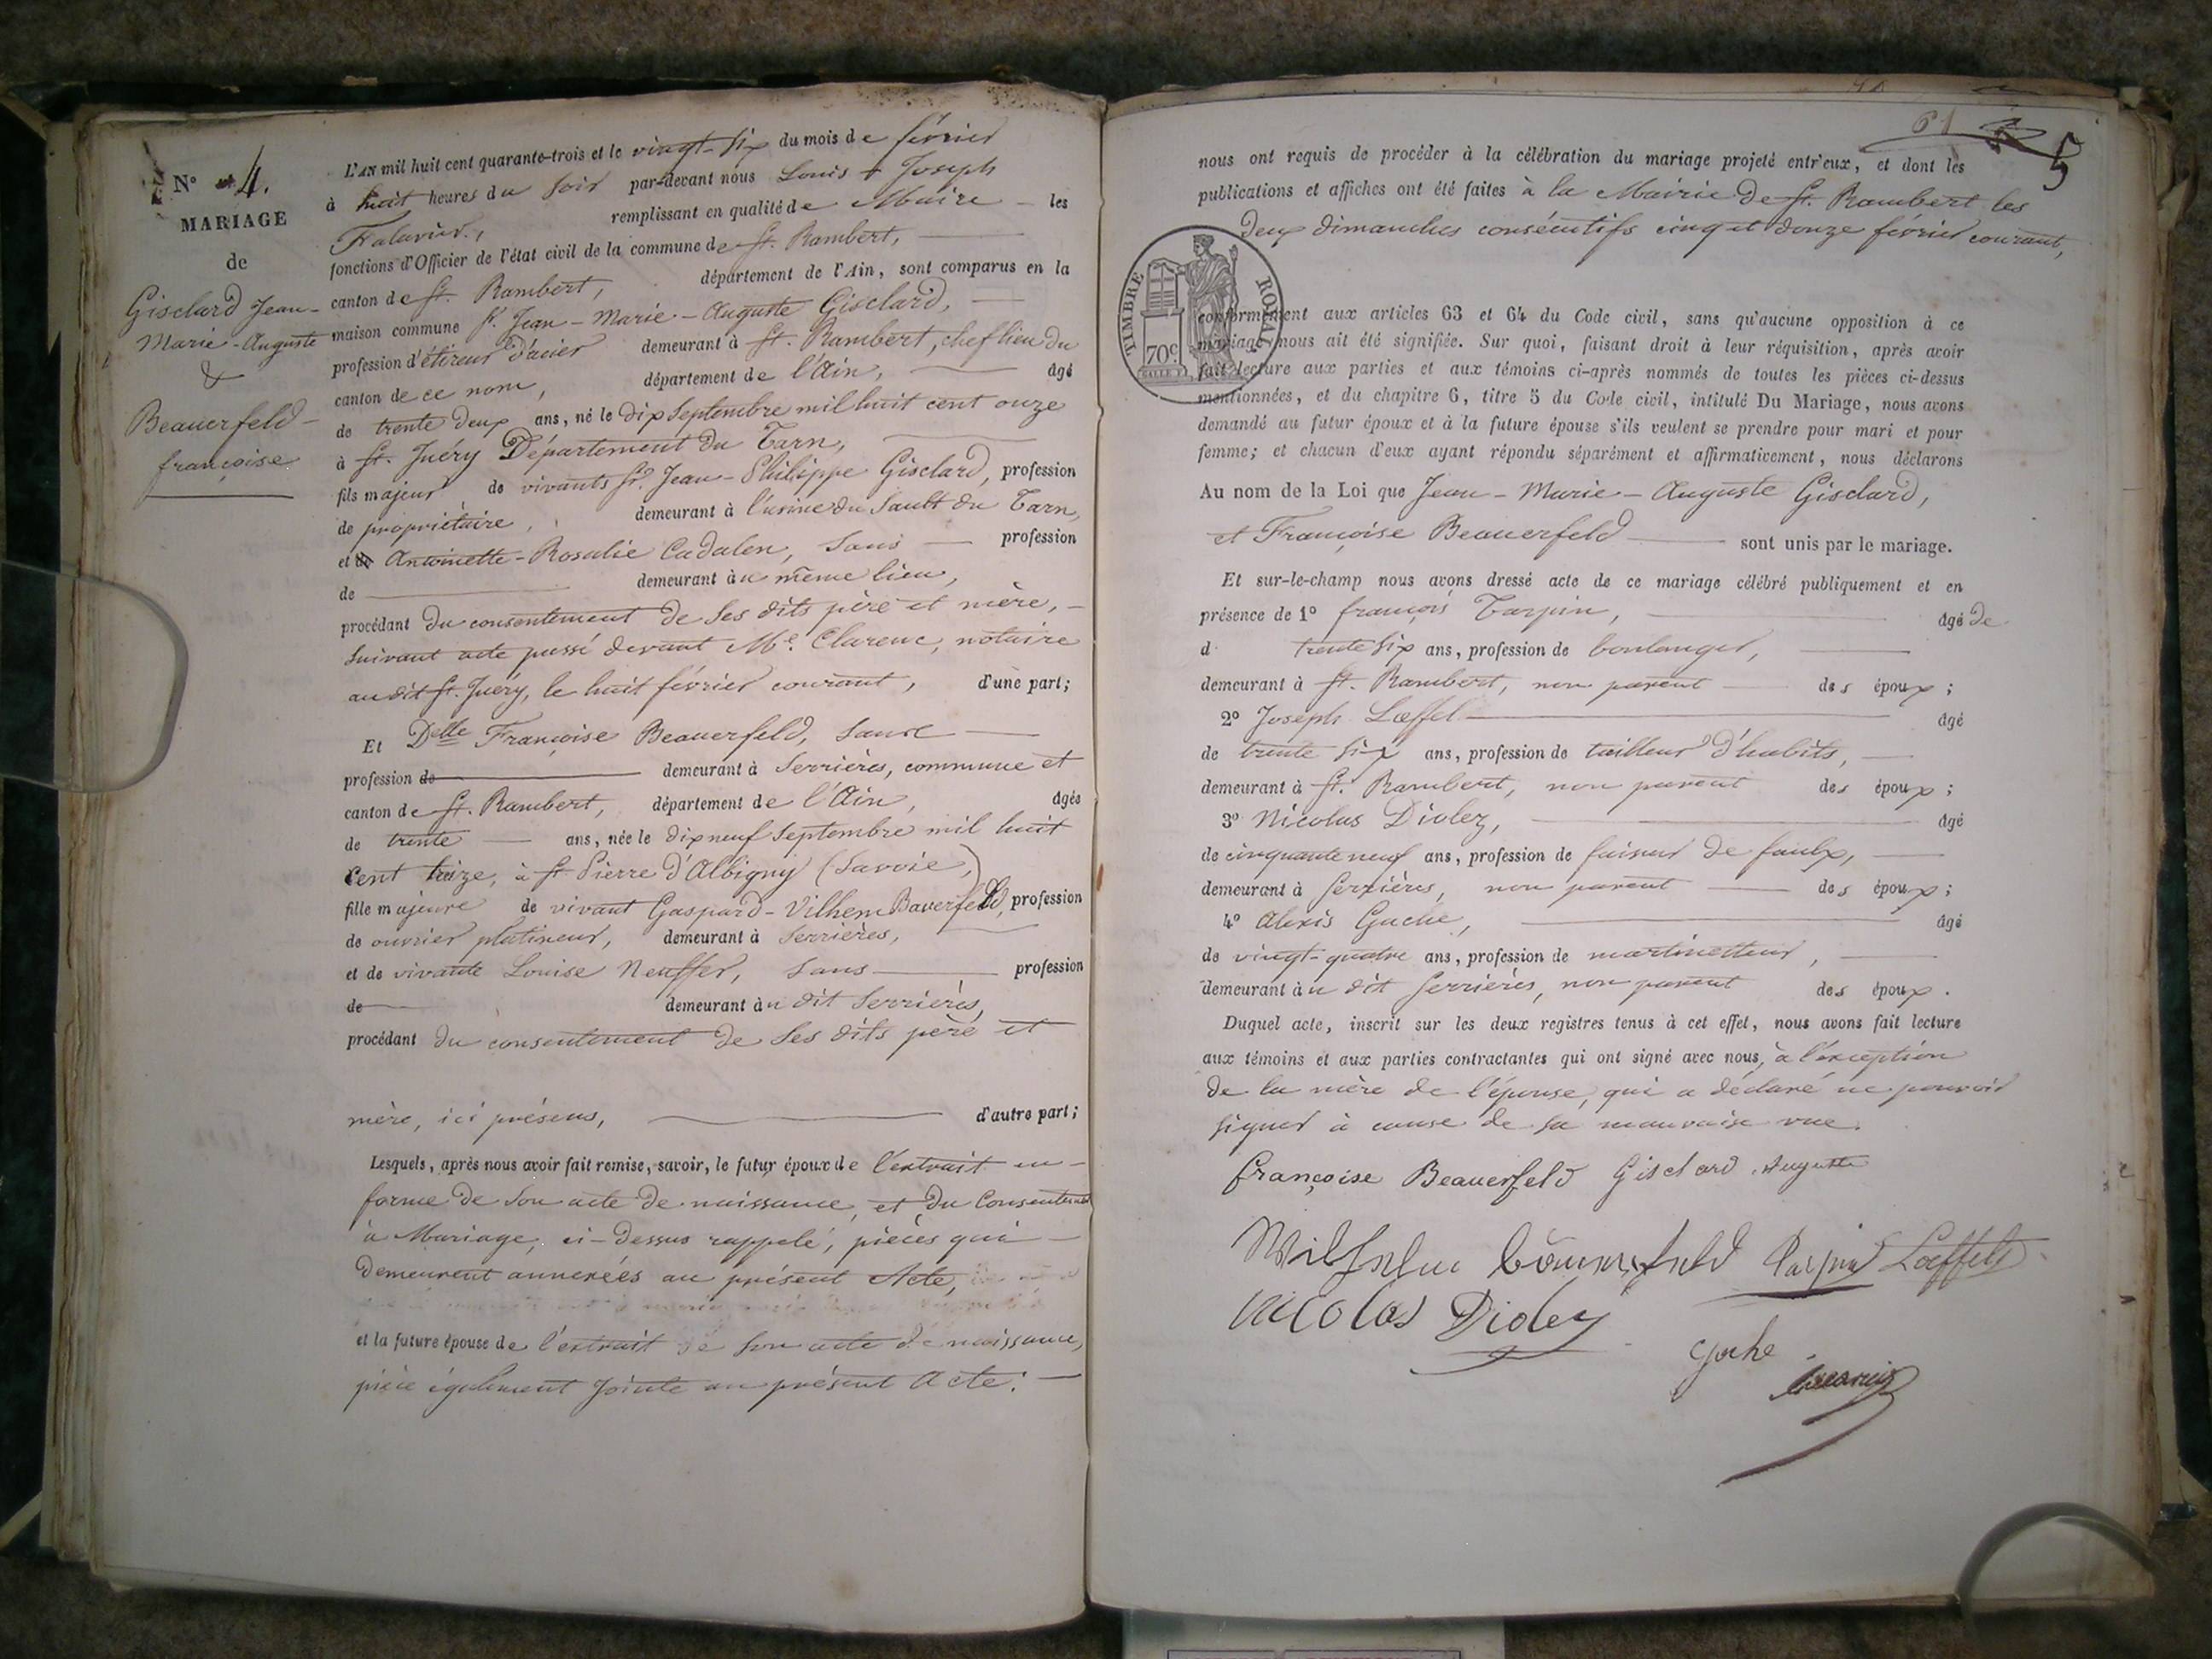 N° 4.
MARIAGE
de
Gisclard Jean-
Marie-Auguste
&
Beauerfeld
françoise
L'AN mil huit cent quarante-trois et le vingt-six du mois de février
à huit heures du soir par-devant nous Louis Joseph
remplissant en qualité de Maire les
fonctions d'Officier de l'état civil de la commune de St. Rambert,
canton de St. Rambert, département de l'Ain, sont comparus en la
maison commune Sr. Jean-Marie-Auguste Gisclard,
profession d'étireur d'acier demeurant à St. Rambert, chef lieu du
canton de ce nom, département de l'Ain, âgé
de trente deux ans, né le dix Septembre mil huit cent onze
à St. Juéry Département du Tarn,
fils majeur de vivants Sr. Jean-Philippe Gisclard, profession
de propriétaire, demeurant à l'usine du Sault du Tarn,
et Antoinette-Rosalie Cadalen, Sans profession
de demeurant au même lieu,
procédant du consentement de Ses dits père et mère,
suivant acte passé devant Me. Clarenc, notaire
au dit St. Juéry, le huit février courant, d'une part;
Et Delle Françoise Beauerfeld, Sans
profession de demeurant à Serrières, commune et
canton de St. Rambert, département de l'Ain, âgée
de trente ans, née le dix neuf Septembre mil huit
cent treize, à St Pierre d'Albigny (Savoie,)
fille majeure de vivant Gaspard-Vilhem Bauerfeld, profession
de ouvrier platineur, demeurant à Serrières,
et de vivante Louise Neuffer, Sans profession
de demeurant au dit Serrières,
procédant du consentement de Ses dits père et
mère, ici présens, d'autre part;
Lesquels, après nous avoir fait remise, savoir, le futur époux de l'extrait en
forme de Son acte de naissance, et du Consentement
à Mariage, ci-dessus rappelé, pièces qui
demeurent annexées au présent Acte,
et la future épouse de l'extrait de Son acte de naissance,
pièce également jointe au présent Acte.
61
5
nous ont requis de procéder à la célébration du mariage projeté entr'eux, et dont les
publications et affiches ont été faites à la Mairie de St. Rambert les
deux dimanches consécutifs cinq et douze février courant,
TIMBRE ROYAL
70c
conformément aux articles 63 et 64 du Code civil, sans qu'aucune opposition à ce
mariage nous ait été signifiée. Sur quoi, faisant droit à leur réquisition, après avoir
fait lecture aux parties et aux témoins ci-après nommés de toutes les pièces ci-dessus
mentionnées, et du chapitre 6, titre 5 du Code civil, intitulé Du Mariage, nous avons
demandé au futur époux et à la future épouse s'ils veulent se prendre pour mari et pour
femme; et chacun d'eux ayant répondu séparément et affirmativement, nous déclarons
Au nom de la Loi que Jean-Marie-Auguste Gisclard,
et Françoise Beauerfeld sont unis par le mariage.
Et sur-le-champ nous avons dressé acte de ce mariage célébré publiquement et en
présence de 1° françois Tarpin, âgé de
d trente Six ans, profession de boulanger,
demeurant à St. Rambert, non parent des époux;
2° Joseph Lœffel âgé
de trente Six ans, profession de tailleur d'habits,
demeurant à St. Rambert, non parent des époux;
3° Nicolas Diolez, âgé
de cinquante neuf ans, profession de faiseur de faulx,
demeurant à Serrières, non parent des époux;
4° Alexis Gache, âgé
de vingt-quatre ans, profession de martinetteur,
demeurant au dit Serrières, non parent des époux.
Duquel acte, inscrit sur les deux registres tenus à cet effet, nous avons fait lecture
aux témoins et aux parties contractantes qui ont signé avec nous, à l'exception
de la mère de l'épouse, qui a déclaré ne pouvoir
signer à cause de sa mauvaise vue.
françoise Beauerfeld Gisclard Auguste
Wilhelm Tarpin Lœffel
Nicolas Dioley
Gache